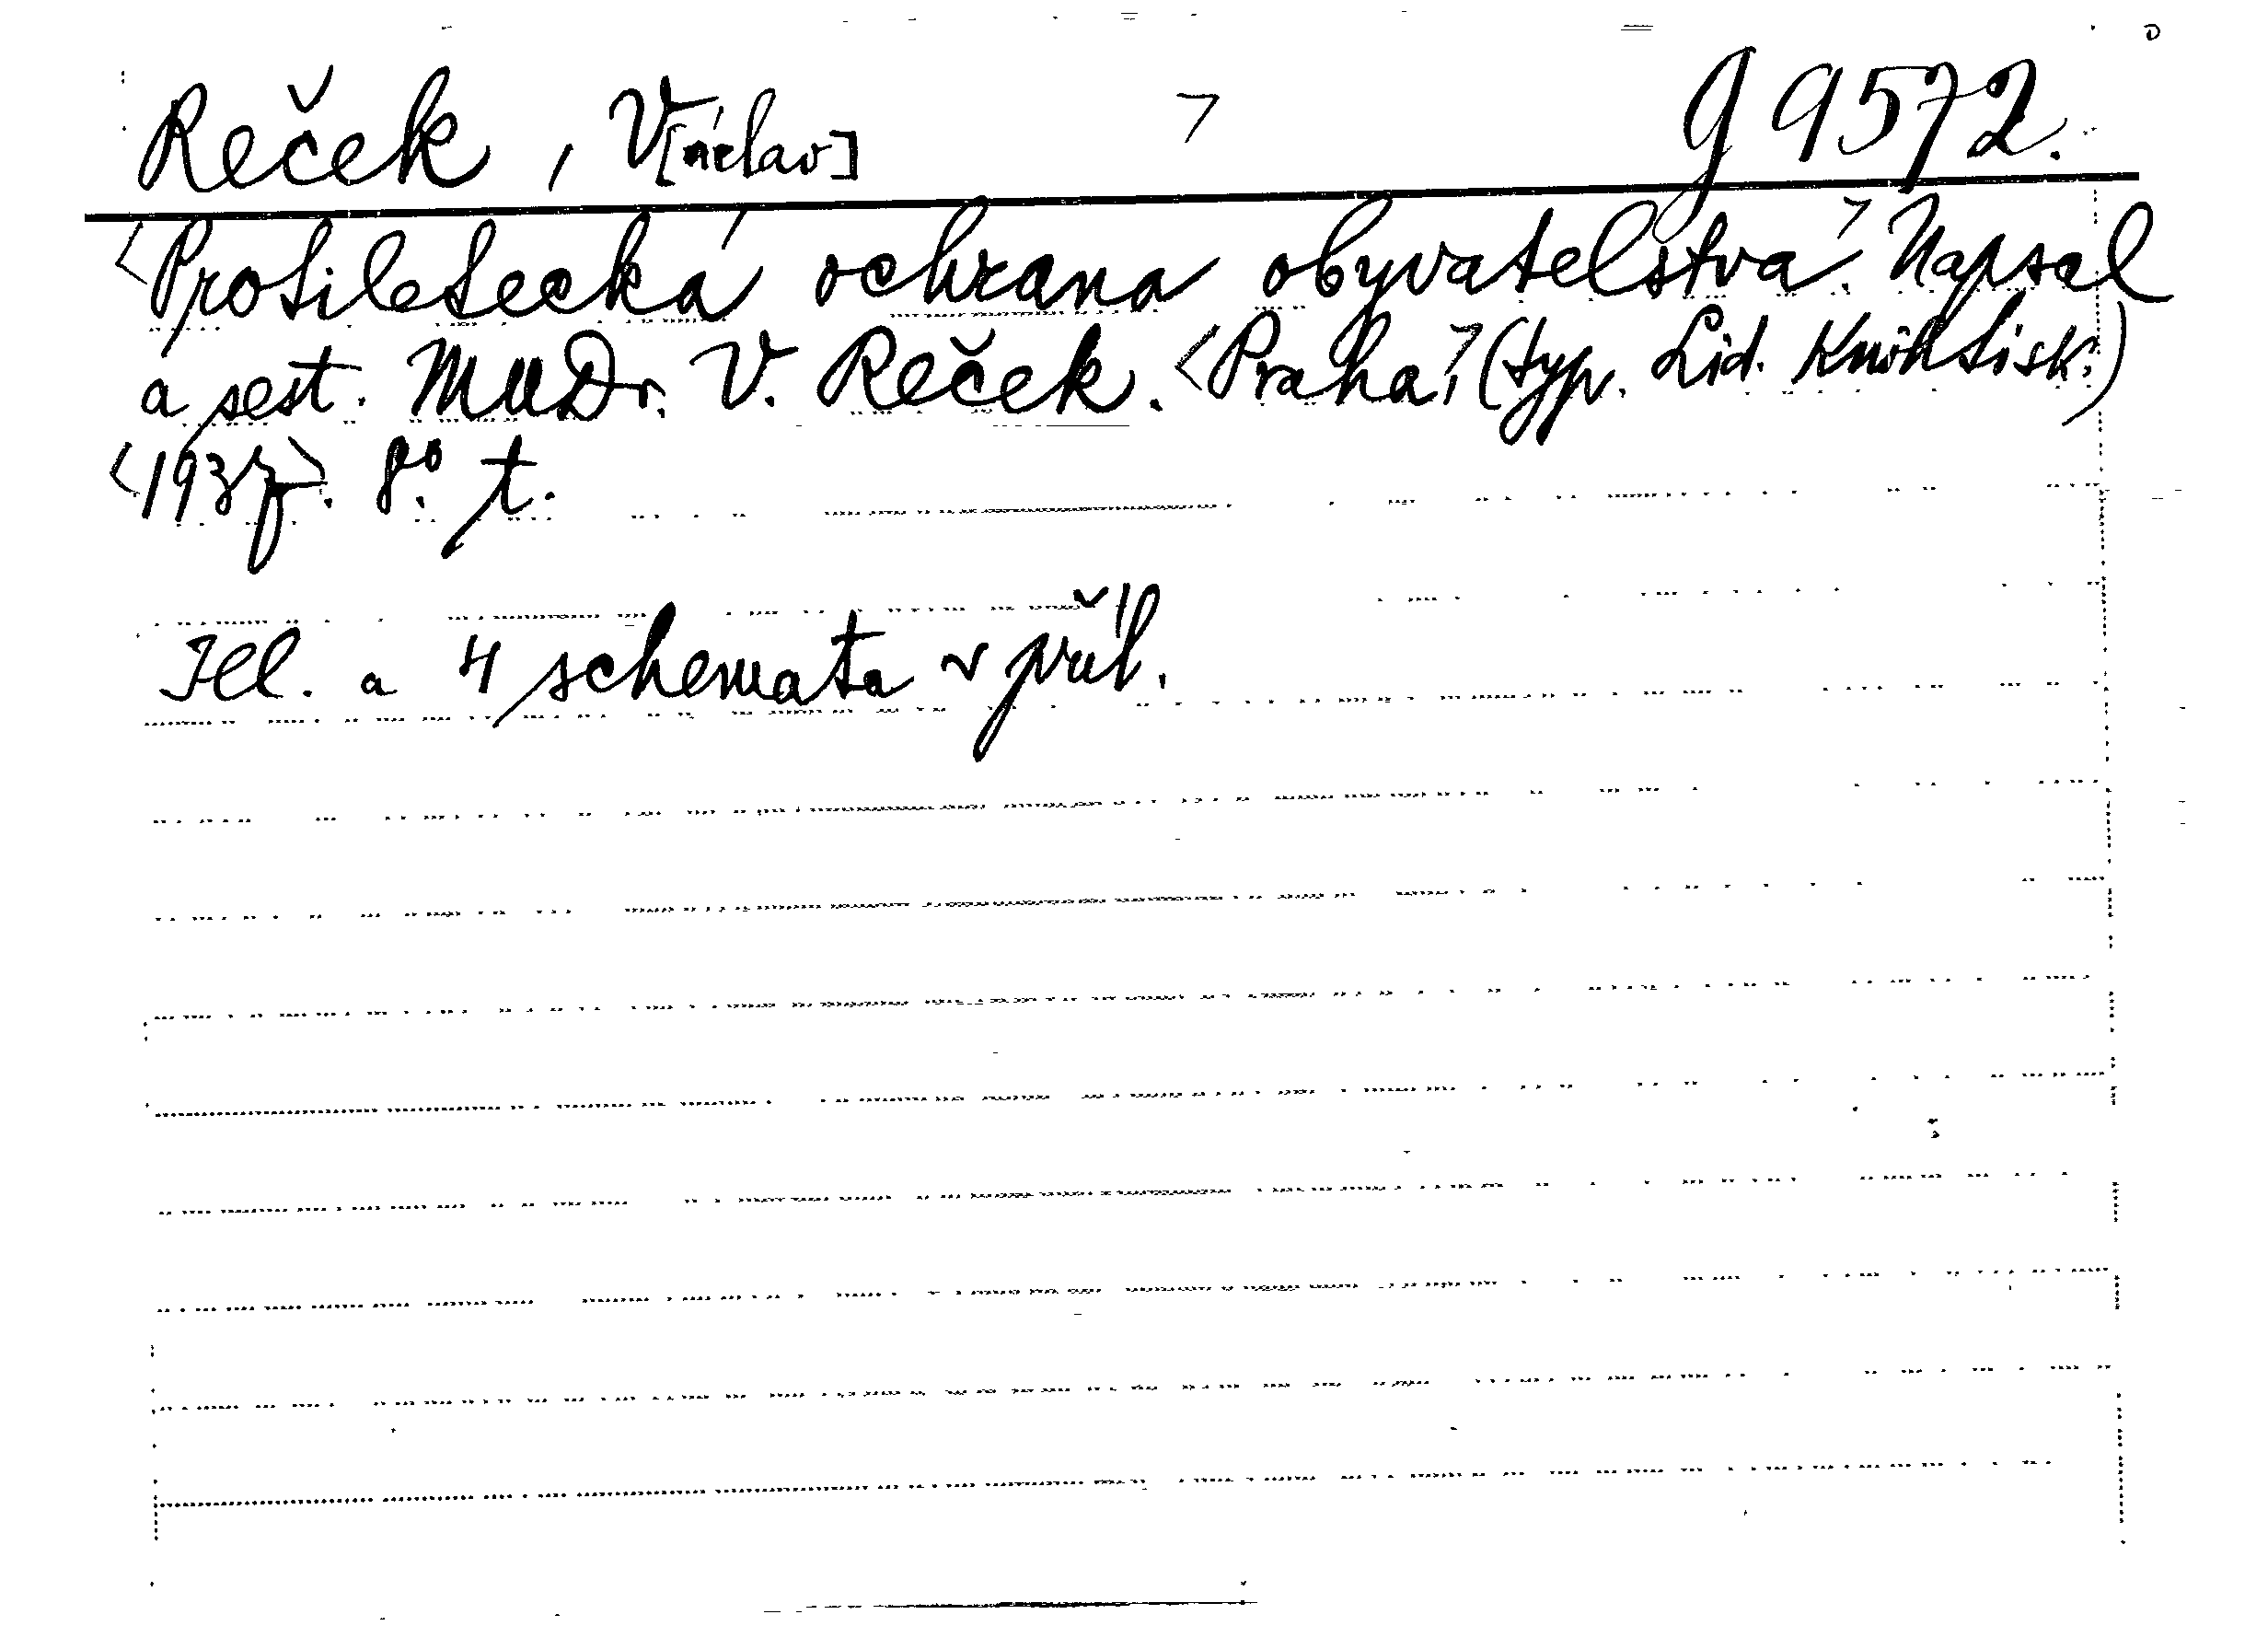 Reček, V[áclav] g 9572.
<Protiletecká ochrana obyvatelstva>. Napsal
a sest. MUDr. V. Reček. <Praha>, (typ. Lid. Knihtisk.)
<1937>. 8° t.
Ill. a 4 schemata v příl.